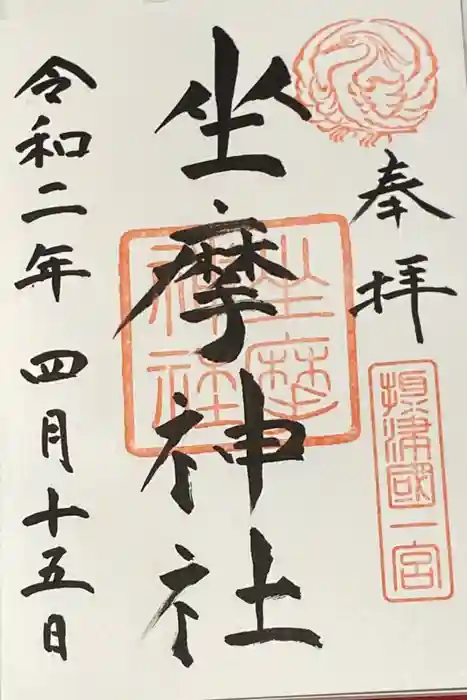 奉拝
摂津國一宮
坐摩神社
坐摩神社
令和二年四月十五日